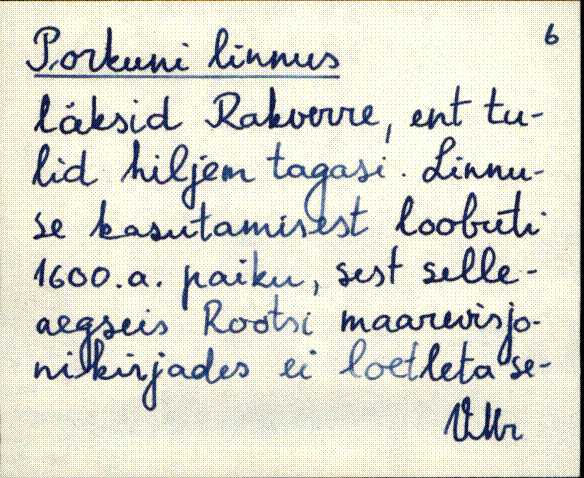 6
Porkuni linnus
läksid Rakverre, ent tu-
lid hiljem tagasi. Linnu-
se kasutamisest loobuti
1600.a. paiku, sest selle-
aegseis Rootsi maarevisjo-
nikirjades ei loetleta se-